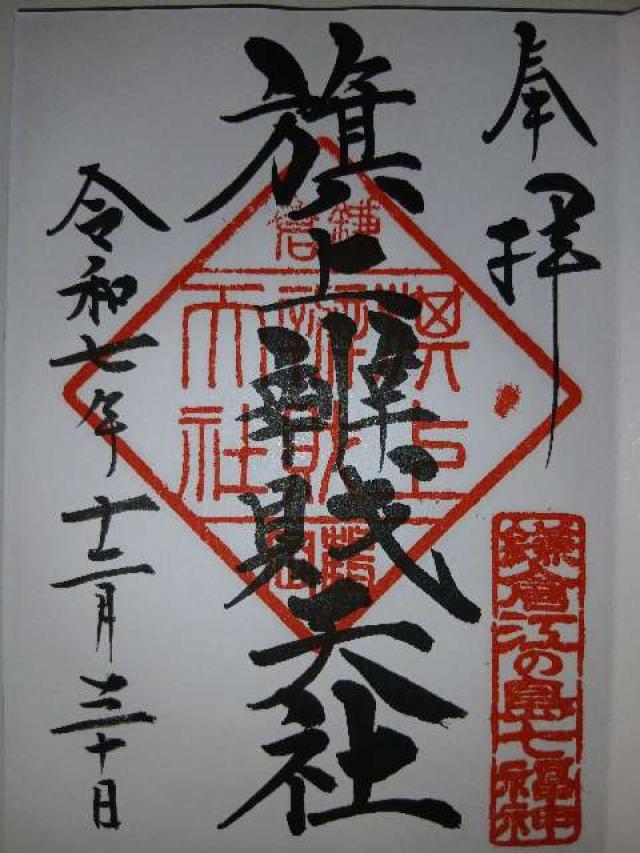 奉拝
鎌倉江の島七福神
旗上辨財天社
令和七年十二月三十日
鎌倉
旗上
辨財
天社